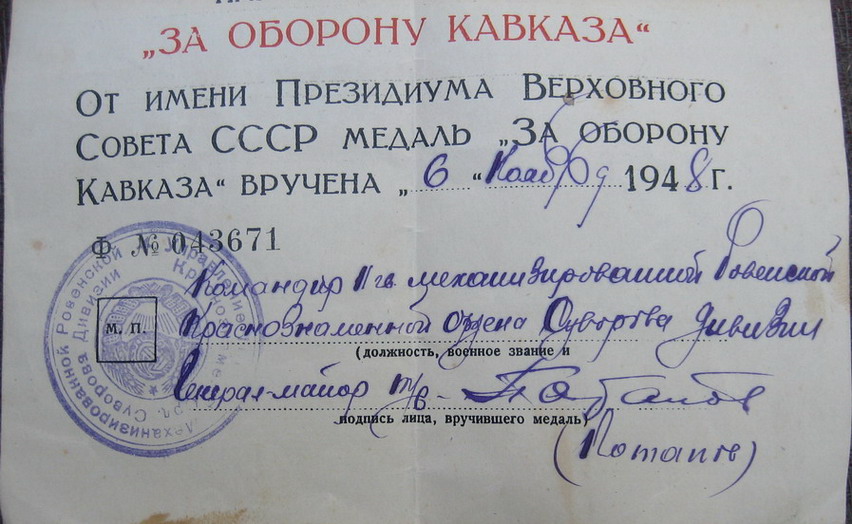 „ЗА ОБОРОНУ КАВКАЗА“
ОТ ИМЕНИ ПРЕЗИДИУМА ВЕРХОВНОГО
СОВЕТА СССР МЕДАЛЬ „ЗА ОБОРОНУ
КАВКАЗА“ ВРУЧЕНА „6“ Ноября 1948 г.
Ф № 043671
Командир 11 гв. механизированной Ровенской
Краснознаменной ордена Суворова дивизии
(должность, военное звание и
Генерал-майор т/в
подпись лица, вручившего медаль)
(Потапов)
М. П.
Управление
Механизированной Ровенской
Суворова Дивизии